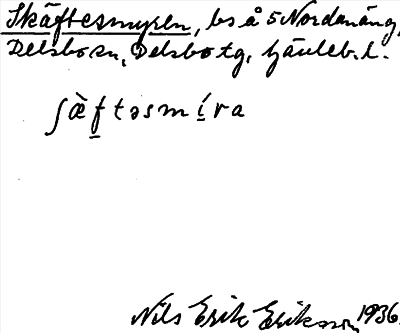 Skäftesmyren, bs å 5 Nordanäng,
Delsbo sn, Delsbo tg, Gävleb. l.
ʃæ̀ftəsmíra
Nils Erik Eriksson 1936